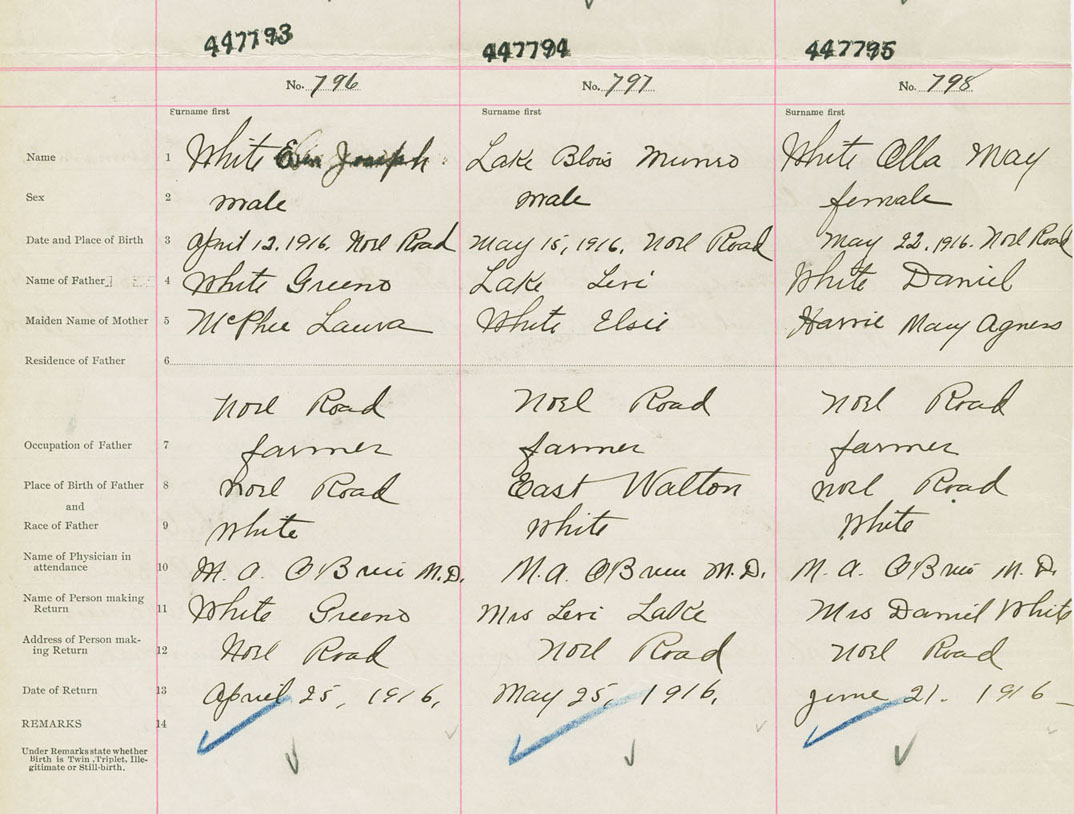 447793 447794 447795
No. 796 No. 797 No. 798
Surname first Surname first Surname first
Name 1 White Joseph Lake Blois Munro White Olla May
Sex 2 male male female
Date and Place of Birth 3 April 12. 1916. Noel Road May 15, 1916. Noel Road May 22. 1916. Noel Road
Name of Father 4 White Greeno Lake Levi White Daniel
Maiden Name of Mother 5 McPhee Laura White Elsie Harvie Mary Agness
Residence of Father 6
Noel Road Noel Road Noel Road
Occupation of Father 7 farmer farmer farmer
Place of Birth of Father 8 Noel Road East Walton Noel Road
and
Race of Father 9 White White White
Name of Physician in
attendance 10 M. A. O'Brien M.D. M. A. O'Brien M.D. M. A. O'Brien M. D.
Name of Person making
Return 11 White Greeno Mrs Levi Lake Mrs Daniel White
Address of Person mak-
ing Return 12 Noel Road Noel Road Noel Road
Date of Return 13 April 25, 1916. May 25, 1916. June 21. 1916
REMARKS 14
Under Remarks state whether
Birth is Twin, Triplet, Ille-
gitimate or Still-birth.